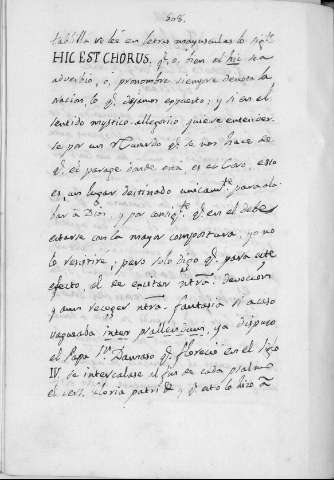 608.
tablilla se leé en letras mayusculas lo sigte.
HIC EST CHORUS. q.e, ó, bien el hic sea
adverbio, ó, pronombre siempre denota la
nacion lo q.e dejamos expuesto; y si en el
sentido mystico-allegorico quiere entender
se por un recuerdo q.e se nos hace de
q.e el parage donde está es el Coro, esto
es, un lugar destinado unicam.te para ala
bar á Dios, y por consig.te q.e en el debe
estarse con la mayor compostura, yo no
lo resistiré; pero solo digo q.e para este
efecto, el de excitar ntra. devocion
y aun recoger ntra. fantasia si acaso
vagueada inter psallendum, ya dispuso
el Papa Sn. Damaso q.e florecio en el siglo
IV. se intercalase al fin de cada psalmo
el vers. Gloria patri &. y q.e esto lo hizo á